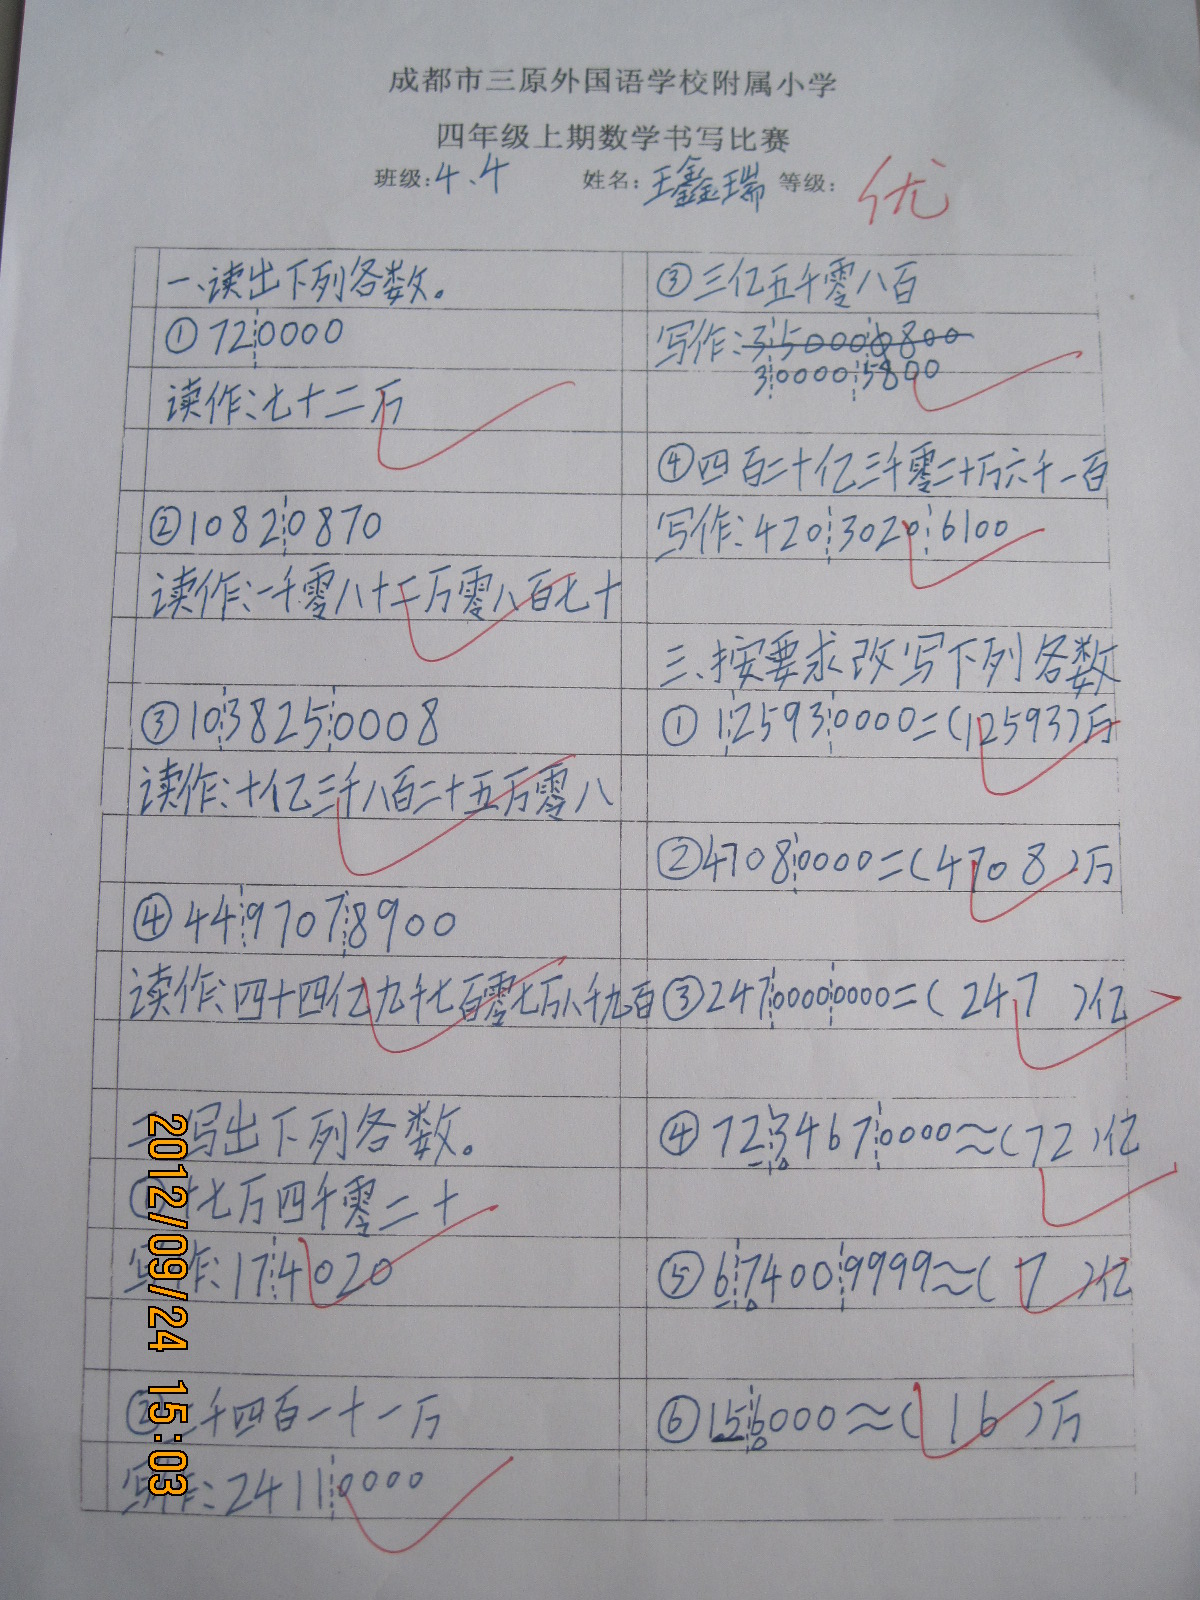 成都市三原外国语学校附属小学
四年级上期数学书写比赛
班级:4.4 姓名:王鑫瑞 等级: 优
一、读出下列各数。
①720000
读作:七十二万
②10820870
读作:一千零八十二万零八百七十
③1038250008
读作:十亿三千八百二十五万零八
④4497078900
读作:四十四亿九千七百零七万八千九百
二、写出下列各数。
①十七万四千零二十
写作:174020
②二千四百一十一万
写作:24110000
③三亿五千零八百
写作:350000800
300005800
④四百二十亿三千零二十万六千一百
写作:42030206100
三、按要求改写下列各数
①125930000=(12593)万
②47080000=(4708)万
③24700000000=(247)亿
④7234670000≈(72)亿
⑤674009999≈(7)亿
⑥156000≈(16)万
2012/09/24 15:03